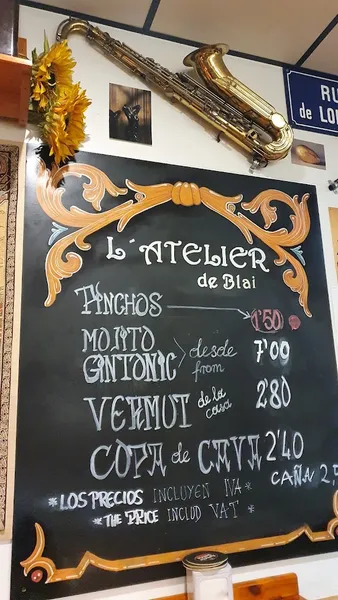 RU
de LO
L'ATELIER
de Blai
PINCHOS 1'50
MOJITO
GINTONIC desde from 7'00
VERMUT de la casa 2'80
COPA de CAVA 2'40
CAÑA 2,5
*LOS PRECIOS INCLUYEN IVA*
*THE PRICE INCLUD VAT*